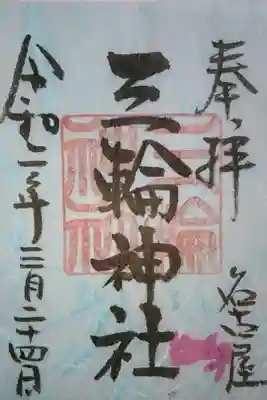 奉拝
名古屋
三輪神社
令和二年三月二十四日